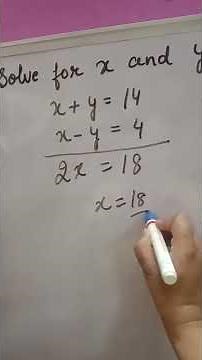 Solve for x and y
x + y = 14
x - y = 4
2x = 18
x = 18